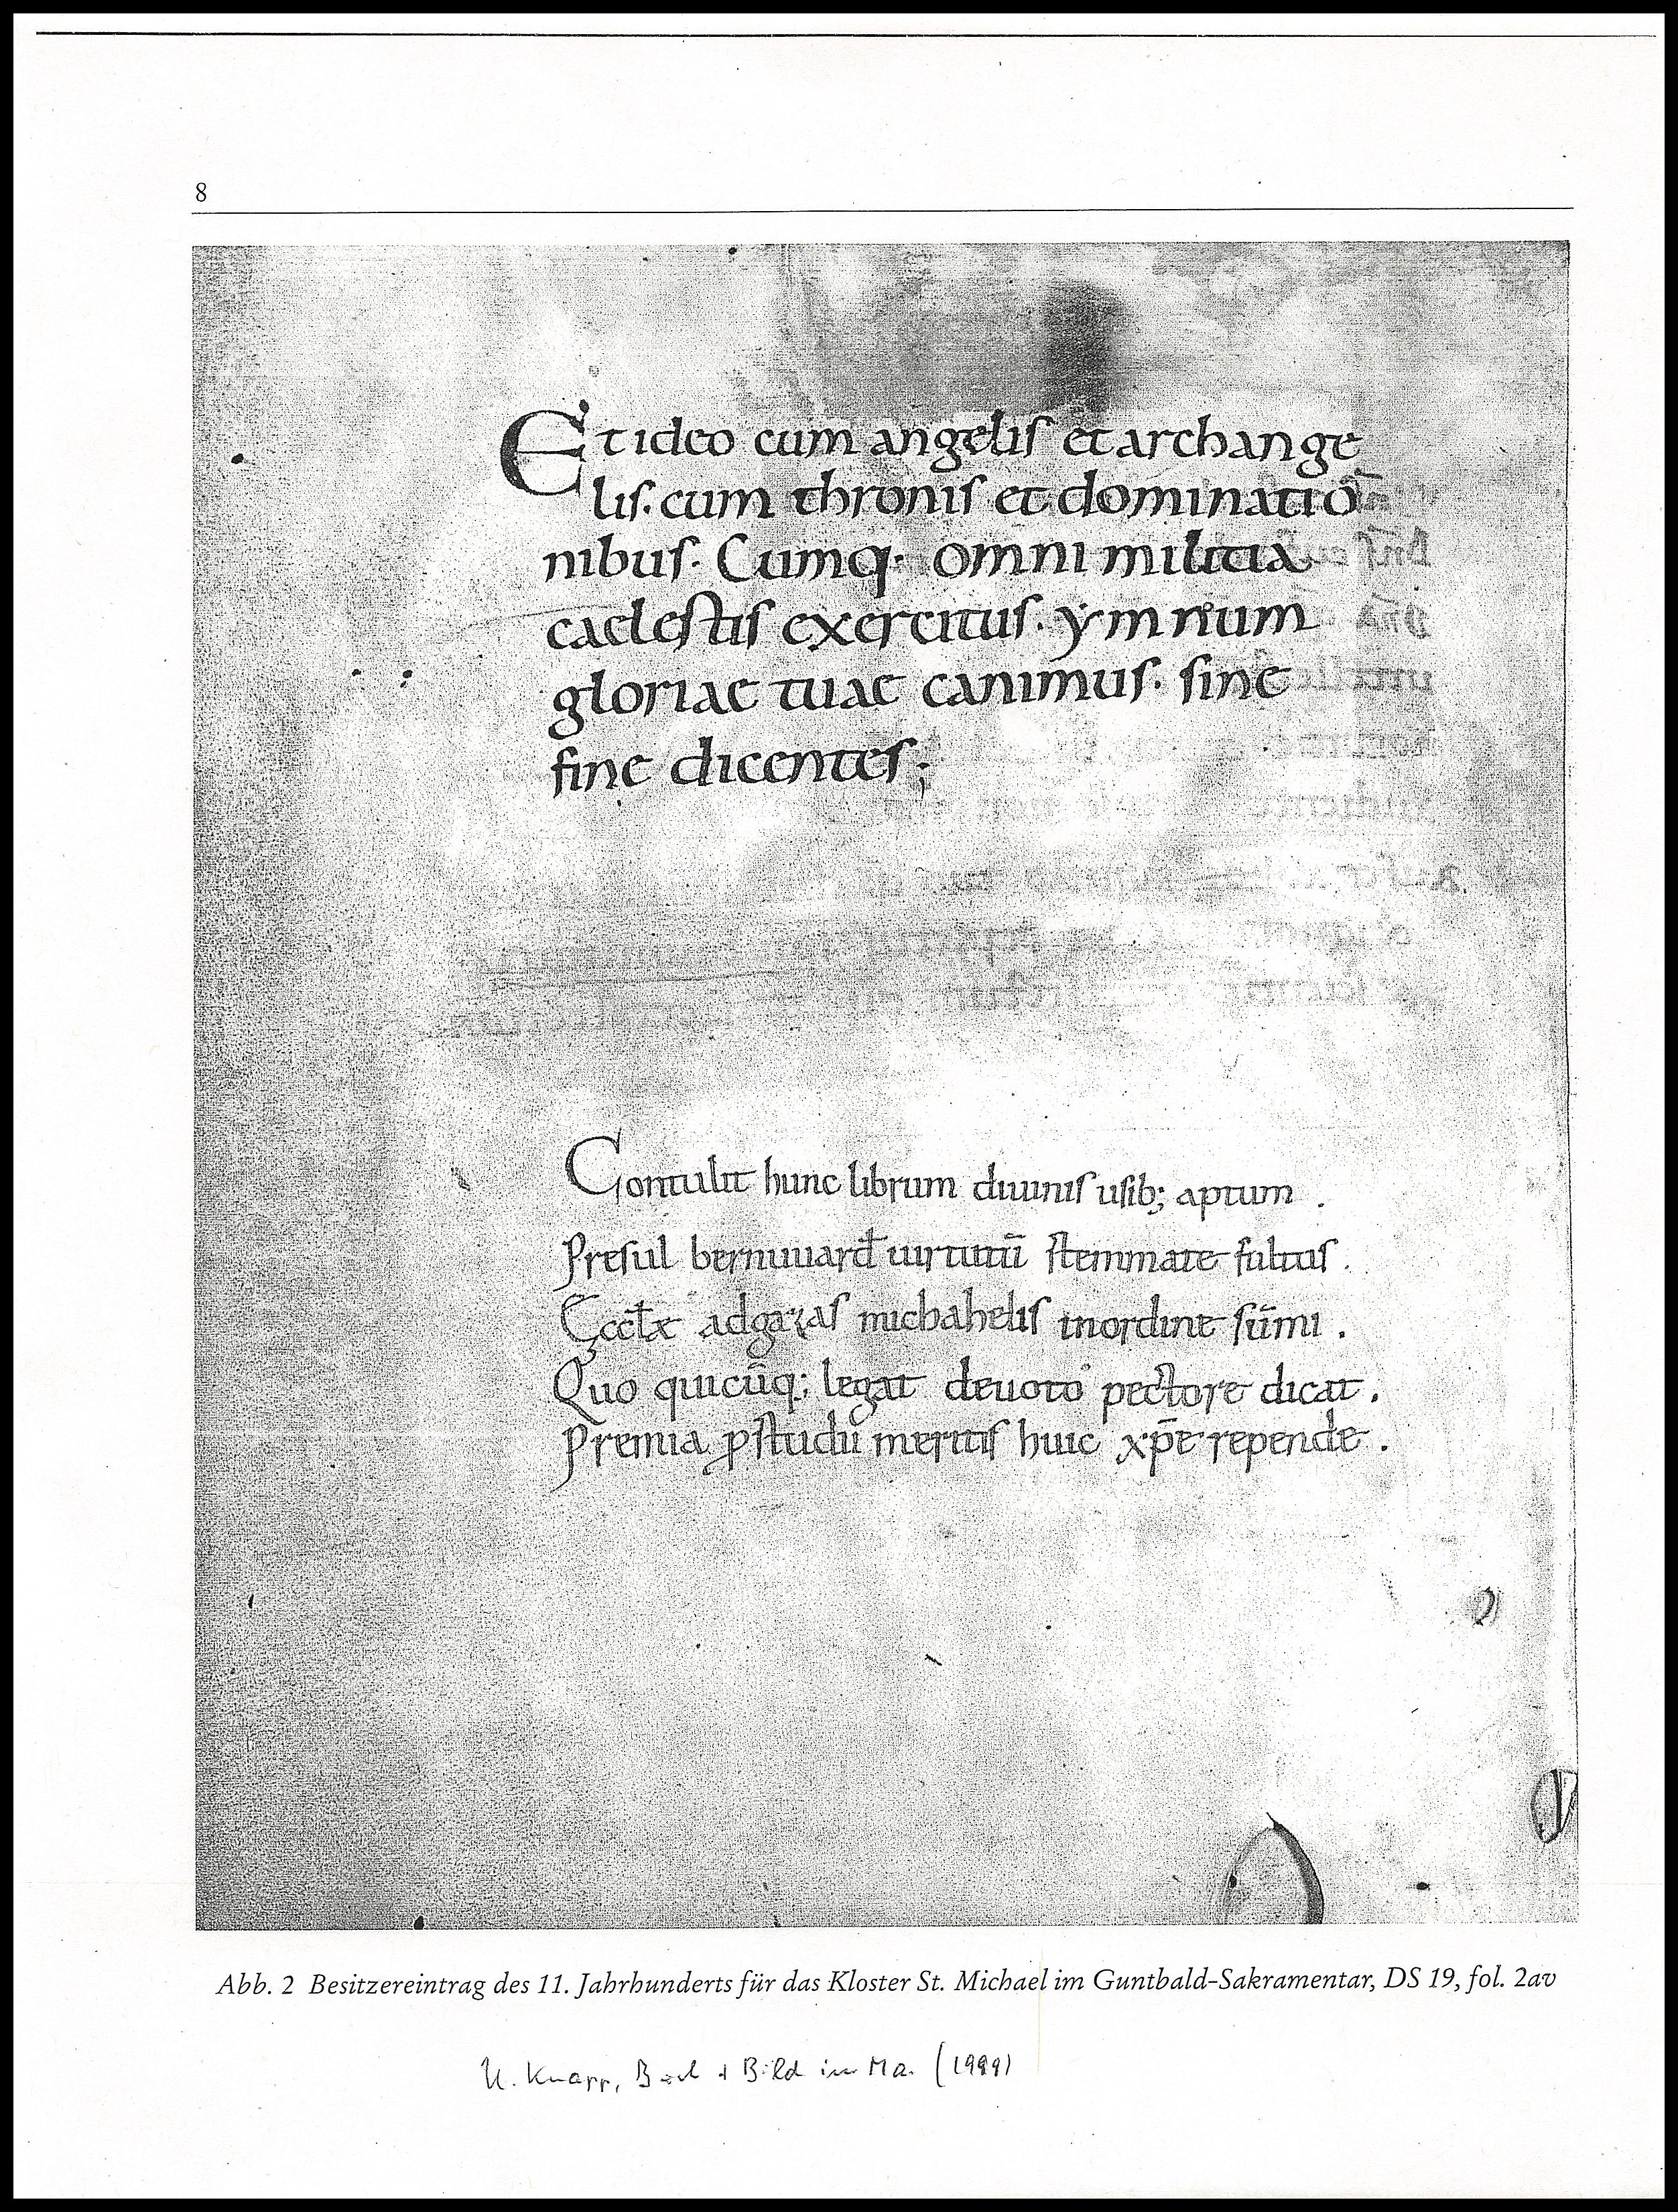 8
Et ideo cum angelis et archange
lis. cum thronis et dominatio
nibus. Cumq· omni militia
caelestis exercitus. ymnum
gloriae tuae canimus. sine
fine dicentes;
Contulit hunc librum diuinis usib; aptum .
Presul bernuuard uirtutū stemmate fultus .
Eccłę ad gazas michahelis in ordine sūmi .
Quo quicūq; legat deuoto pectore dicat .
Premia ꝓ studii meritis huic xp̄e repende .
Abb. 2 Besitzereintrag des 11. Jahrhunderts für das Kloster St. Michael im Guntbald-Sakramentar, DS 19, fol. 2av
U. Knapp, Buch + Bild im Ma. (1999)